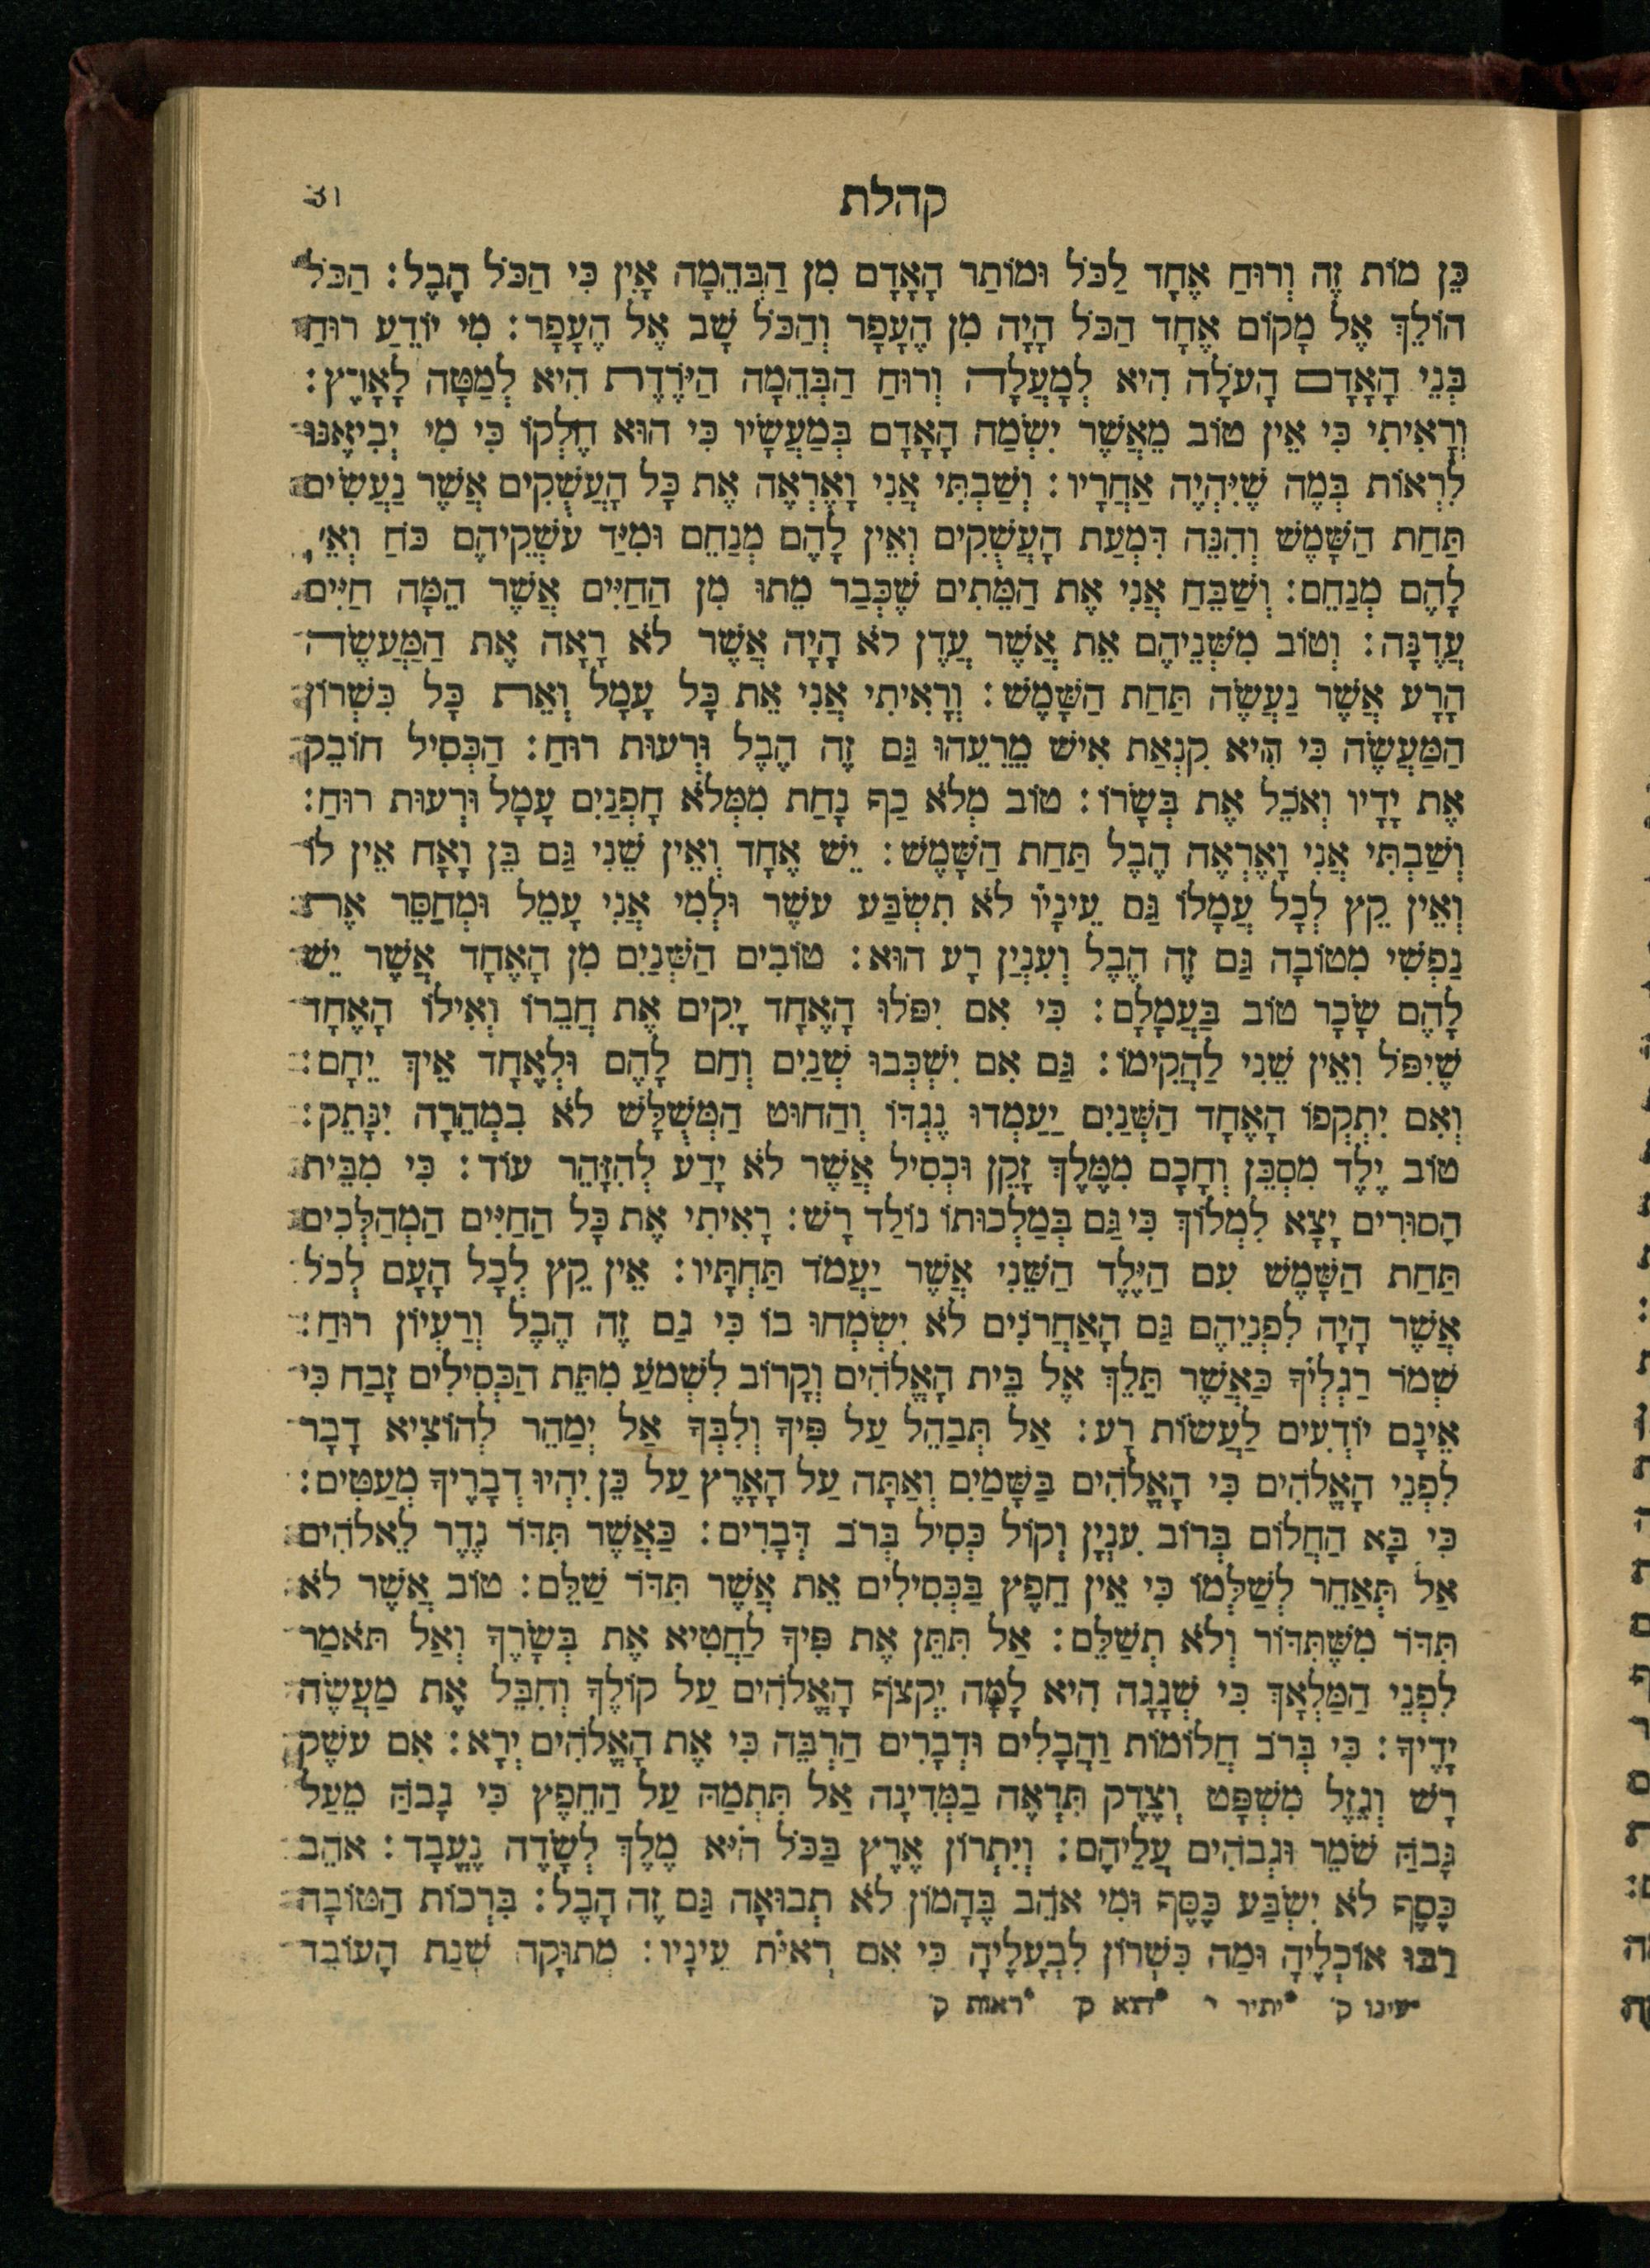 קהלת 31
כֵּן מוֹת זֶה וְרוּחַ אֶחָד לַכֹּל וּמוֹתַר הָאָדָם מִן הַבְּהֵמָה אָיִן כִּי הַכֹּל הָבֶל: הַכֹּל
הוֹלֵךְ אֶל מָקוֹם אֶחָד הַכֹּל הָיָה מִן הֶעָפָר וְהַכֹּל שָׁב אֶל הֶעָפָר: מִי יוֹדֵעַ רוּחַ
בְּנֵי הָאָדָם הָעֹלָה הִיא לְמָעְלָה וְרוּחַ הַבְּהֵמָה הַיֹּרֶדֶת הִיא לְמַטָּה לָאָרֶץ:
וְרָאִיתִי כִּי אֵין טוֹב מֵאֲשֶׁר יִשְׂמַח הָאָדָם בְּמַעֲשָׂיו כִּי הוּא חֶלְקוֹ כִּי מִי יְבִיאֶנּוּ
לִרְאוֹת בְּמֶה שֶׁיִּהְיֶה אַחֲרָיו: וְשַׁבְתִּי אֲנִי וָאֶרְאֶה אֶת כָּל הָעֲשֻׁקִים אֲשֶׁר נַעֲשִׂים
תַּחַת הַשָּׁמֶשׁ וְהִנֵּה דִּמְעַת הָעֲשֻׁקִים וְאֵין לָהֶם מְנַחֵם וּמִיַּד עֹשְׁקֵיהֶם כֹּחַ וְאֵי
לָהֶם מְנַחֵם: וְשַׁבֵּחַ אֲנִי אֶת הַמֵּתִים שֶׁכְּבַר מֵתוּ מִן הַחַיִּים אֲשֶׁר הֵמָּה חַיִּים
עֲדֶנָּה: וְטוֹב מִשְּׁנֵיהֶם אֵת אֲשֶׁר עֲדֶן לֹא הָיָה אֲשֶׁר לֹא רָאָה אֶת הַמַּעֲשֶׂה
הָרָע אֲשֶׁר נַעֲשֶׂה תַּחַת הַשָּׁמֶשׁ: וְרָאִיתִי אֲנִי אֵת כָּל עָמָל וְאֵת כָּל כִּשְׁרוֹן
הַמַּעֲשֶׂה כִּי הִיא קִנְאַת אִישׁ מֵרֵעֵהוּ גַּם זֶה הֶבֶל וּרְעוּת רוּחַ: הַכְּסִיל חוֹבֵק
אֶת יָדָיו וְאֹכֵל אֶת בְּשָׂרוֹ: טוֹב מְלֹא כַף נָחַת מִמְּלֹא חָפְנַיִם עָמָל וּרְעוּת רוּחַ:
וְשַׁבְתִּי אֲנִי וָאֶרְאֶה הֶבֶל תַּחַת הַשָּׁמֶשׁ: יֵשׁ אֶחָד וְאֵין שֵׁנִי גַּם בֵּן וָאָח אֵין לוֹ
וְאֵין קֵץ לְכָל עֲמָלוֹ גַּם עֵינָיוֹ לֹא תִשְׂבַּע עֹשֶׁר וּלְמִי אֲנִי עָמֵל וּמְחַסֵּר אֶת
נַפְשִׁי מִטּוֹבָה גַּם זֶה הֶבֶל וְעִנְיַן רָע הוּא: טוֹבִים הַשְּׁנַיִם מִן הָאֶחָד אֲשֶׁר יֵשׁ
לָהֶם שָׂכָר טוֹב בַּעֲמָלָם: כִּי אִם יִפֹּלוּ הָאֶחָד יָקִים אֶת חֲבֵרוֹ וְאִילוֹ הָאֶחָד
שֶׁיִּפֹּל וְאֵין שֵׁנִי לַהֲקִימוֹ: גַּם אִם יִשְׁכְּבוּ שְׁנַיִם וְחַם לָהֶם וּלְאֶחָד אֵיךְ יֵחָם:
וְאִם יִתְקְפוֹ הָאֶחָד הַשְּׁנַיִם יַעַמְדוּ נֶגְדּוֹ וְהַחוּט הַמְשֻׁלָּשׁ לֹא בִמְהֵרָה יִנָּתֵק:
טוֹב יֶלֶד מִסְכֵּן וְחָכָם מִמֶּלֶךְ זָקֵן וּכְסִיל אֲשֶׁר לֹא יָדַע לְהִזָּהֵר עוֹד: כִּי מִבֵּית
הָסוּרִים יָצָא לִמְלוֹךְ כִּי גַּם בְּמַלְכוּתוֹ נוֹלַד רָשׁ: רָאִיתִי אֶת כָּל הַחַיִּים הַמְהַלְּכִים
תַּחַת הַשָּׁמֶשׁ עִם הַיֶּלֶד הַשֵּׁנִי אֲשֶׁר יַעֲמֹד תַּחְתָּיו: אֵין קֵץ לְכָל הָעָם לְכֹל
אֲשֶׁר הָיָה לִפְנֵיהֶם גַּם הָאַחֲרוֹנִים לֹא יִשְׂמְחוּ בוֹ כִּי גַם זֶה הֶבֶל וְרַעְיוֹן רוּחַ:
שְׁמֹר רַגְלְיךָ כַּאֲשֶׁר תֵּלֵךְ אֶל בֵּית הָאֱלֹהִים וְקָרוֹב לִשְׁמֹעַ מִתֵּת הַכְּסִילִים זָבַח כִּי
אֵינָם יוֹדְעִים לַעֲשׂוֹת רָע: אַל תְּבַהֵל עַל פִּיךָ וְלִבְּךָ אַל יְמַהֵר לְהוֹצִיא דָבָר
לִפְנֵי הָאֱלֹהִים כִּי הָאֱלֹהִים בַּשָּׁמַיִם וְאַתָּה עַל הָאָרֶץ עַל כֵּן יִהְיוּ דְבָרֶיךָ מְעַטִּים:
כִּי בָּא הַחֲלוֹם בְּרוֹב עִנְיָן וְקוֹל כְּסִיל בְּרֹב דְּבָרִים: כַּאֲשֶׁר תִּדֹּר נֶדֶר לֵאלֹהִים
אַל תְּאַחֵר לְשַׁלְּמוֹ כִּי אֵין חֵפֶץ בַּכְּסִילִים אֵת אֲשֶׁר תִּדֹּר שַׁלֵּם: טוֹב אֲשֶׁר לֹא
תִּדֹּר מִשֶּׁתִּדּוֹר וְלֹא תְשַׁלֵּם: אַל תִּתֵּן אֶת פִּיךָ לַחֲטִיא אֶת בְּשָׂרֶךָ וְאַל תֹּאמַר
לִפְנֵי הַמַּלְאָךְ כִּי שְׁגָגָה הִיא לָמָּה יִקְצֹף הָאֱלֹהִים עַל קוֹלֶךָ וְחִבֵּל אֶת מַעֲשֵׂה
יָדֶיךָ: כִּי בְּרֹב חֲלוֹמוֹת וַהֲבָלִים וּדְבָרִים הַרְבֵּה כִּי אֶת הָאֱלֹהִים יְרָא: אִם עֹשֶׁק
רָשׁ וְגֵזֶל מִשְׁפָּט וְצֶדֶק תִּרְאֶה בַמְּדִינָה אַל תִּתְמַהּ עַל הַחֵפֶץ כִּי גָבֹהַּ מֵעַל
גָּבֹהַּ שֹׁמֵר וּגְבֹהִים עֲלֵיהֶם: וְיִתְרוֹן אֶרֶץ בַּכֹּל הֹיא מֶלֶךְ לְשָׂדֶה נֶעֱבָד: אֹהֵב
כֶּסֶף לֹא יִשְׂבַּע כֶּסֶף וּמִי אֹהֵב בֶּהָמוֹן לֹא תְבוּאָה גַּם זֶה הָבֶל: בִּרְבוֹת הַטּוֹבָה
רַבּוּ אוֹכְלֶיהָ וּמַה כִּשְׁרוֹן לִבְעָלֶיהָ כִּי אִם רְאיּת עֵינָיו: מְתוּקָה שְׁנַת הָעוֹבֵד
עינו ק׳ *יתיר י׳ *הוא ק׳ *ראות ק׳